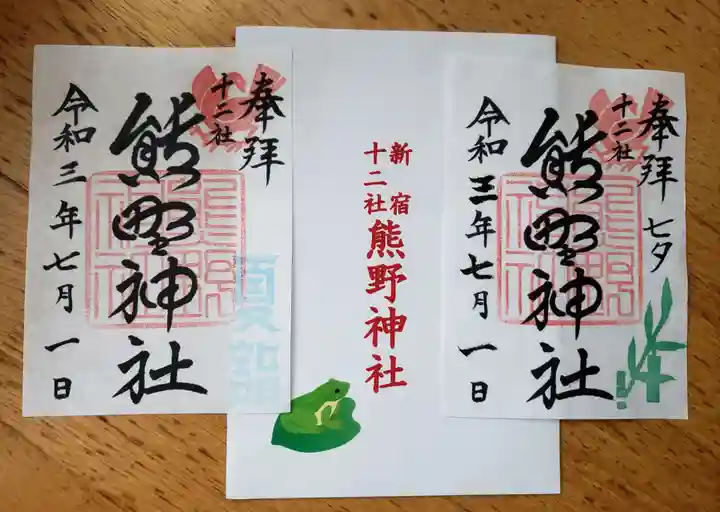 奉拝
十二社
熊野神社
令和三年七月一日
新宿
十二社
熊野神社
奉拝
七夕
十二社
熊野神社
令和三年七月一日